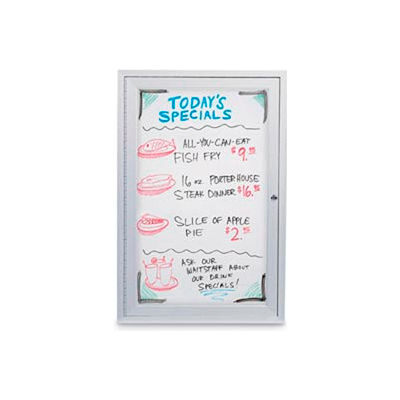 TODAY'S
SPECIALS
ALL-YOU-CAN-EAT
FISH FRY $9.95
16 oz PORTERHOUSE
STEAK DINNER $16.95
SLICE OF APPLE
PIE $2.95
ASK OUR
WAITSTAFF ABOUT
OUR DRINK
SPECIALS!